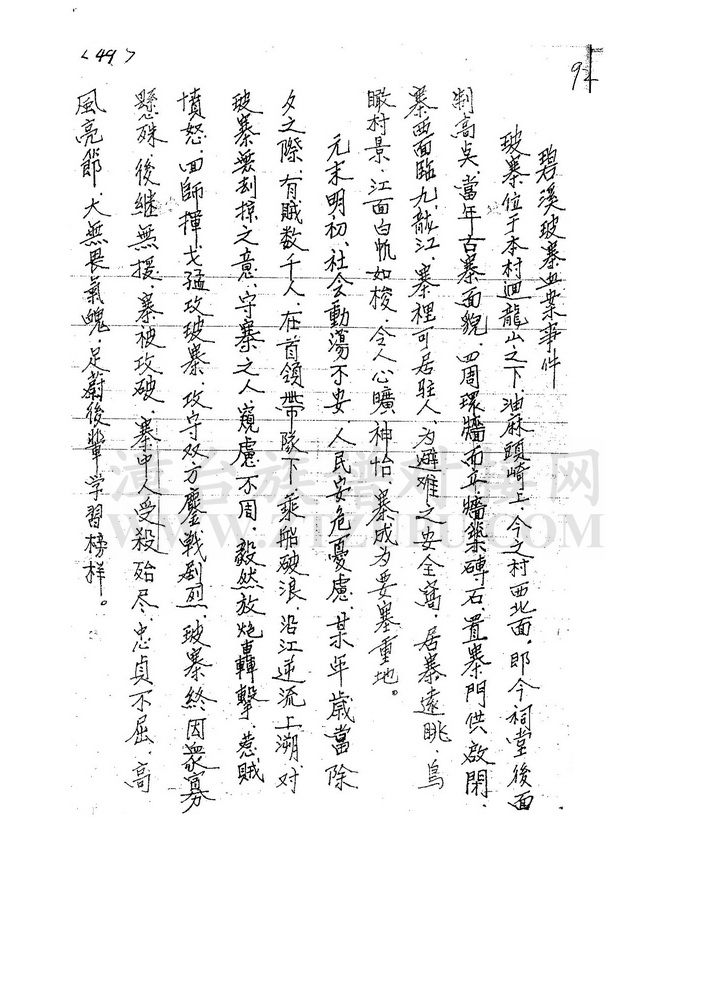 92
<44>
碧溪玻寨血案事件
玻寨位于本村迴龍山之下,油麻頭崎上,今之村西北面,即今祠堂後面
制高点,當年古寨面貌,四周環牆而立,牆築磚石,置寨門供啟閉,
寨西面臨九龍江,寨裡可居駐人,為避难之安全窩,居寨遠眺,鳥
瞰村景,江面白帆如梭,令人心曠神怡,寨成為要塞重地。
元末明初,社会動蕩不安,人民安危憂慮,某年歲當除
夕之際,有賊数千人,在首領帶隊下,乘船破浪,沿江逆流上溯,对
玻寨無刦掠之意,守寨之人,窺慮不周,毅然放炮轟擊,惹賊
憤怒,回師揮戈猛攻玻寨,攻守双方鏖戦剧烈,玻寨終因衆寡
懸殊,後継無援,寨被攻破,寨中人受殺殆尽,忠貞不屈,高
風亮節,大無畏氣魄,足蔚後輩学習榜样。
漳台族谱对接网
WWW.ZTZUPU.COM